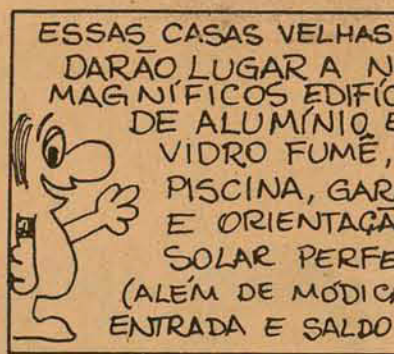 ESSAS CASAS VELHAS
DARÃO LUGAR A N
MAGNÍFICOS EDIFÍC
DE ALUMÍNIO E
VIDRO FUMÊ,
PISCINA, GAR
E ORIENTAÇÃ
SOLAR PERFE
(ALÉM DE MÓDICA
ENTRADA E SALDO